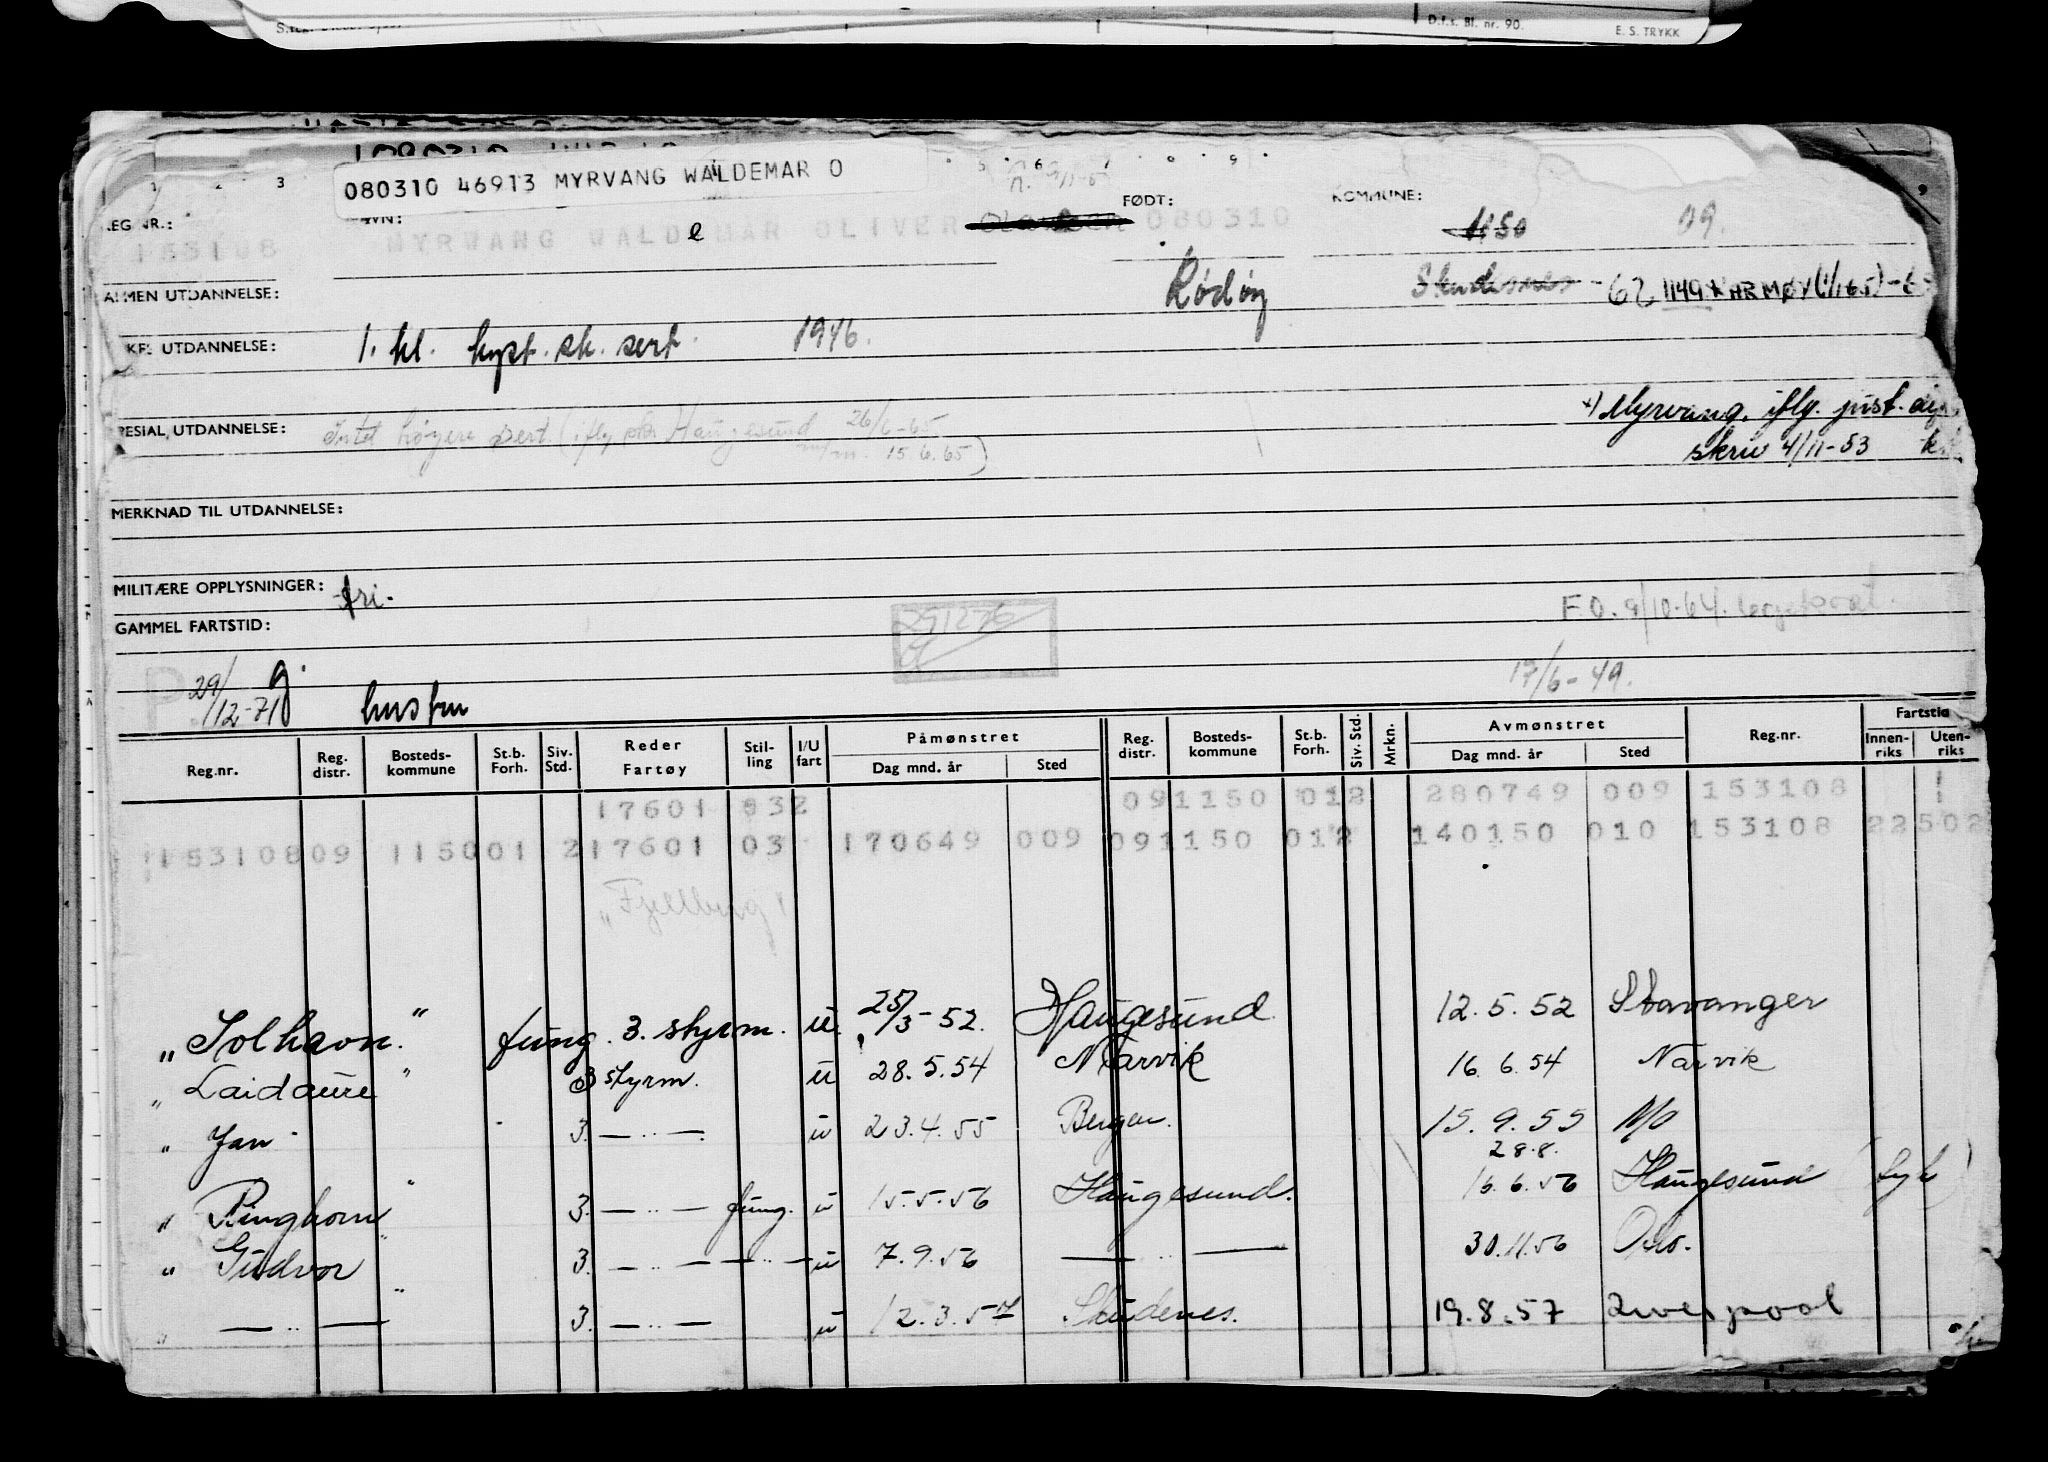 D.f.s. Bl. nr. 90. E. S. TRYKK
080310 46913 MYRVANG WALDEMAR O
FØDT: KOMMUNE:
MYRWANG WALDEMAR OLIVER 080310 1150 09.
153108
Rødøy Skudesnes - 62 1149 KARMØY (1/1 65)
UTDANNELSE:
UTDANNELSE: 1. kl. kyst. sk. sert. 1946.
x) Myrvang, iflg. just. dep
UTDANNELSE: Intet høyere sert. (iflg. Haugesund 26/6-65
skriv 4/11-53
m. 15.6.65)
MERKNAD TIL UTDANNELSE:
MILITÆRE OPPLYSNINGER: fri.
F.O. 9/10-64.
GAMMEL FARTSTID:
291276
29/12-71 hustru 17/6-49.
Reg.nr. Reg. distr. Bosteds-kommune St.b. Forh. Siv. Std. Reder Fartøy Stil-ling I/U fart Påmønstret Dag mnd. år Sted Reg. distr. Bosteds-kommune St.b. Forh. Siv. Std. Mrkn. Avmønstret Dag mnd. år Sted Reg.nr. Fartstid Innen-riks Uten-riks
17601 832 091150 012 280749 009 153108 1
15310809 115001 217601 03 170649 009 091150 012 140150 010 153108 22502
"Fjellberg"
"Solhavn" fung. 3. styrm. u. 25/3-52. Haugesund 12.5.52 Stavanger
"Laidaure" 3 styrm. u 28.5.54 Narvik 16.6.54 Narvik
"Jan" 3. — .. — u 23.4.55 Bergen. 15.9.55 Mo
28.8.
"Ringhorn" 3. — .. — fung. u 15.5.56 Haugesund. 16.6.56 Haugesund (syk)
"Gudvor" 3. — .. — — .. — u 7.9.56 — .. — 30.11.56 Oslo.
" — .. — " 3. — .. — u 12.3.57 Skudenes. 19.8.57 Liverpool